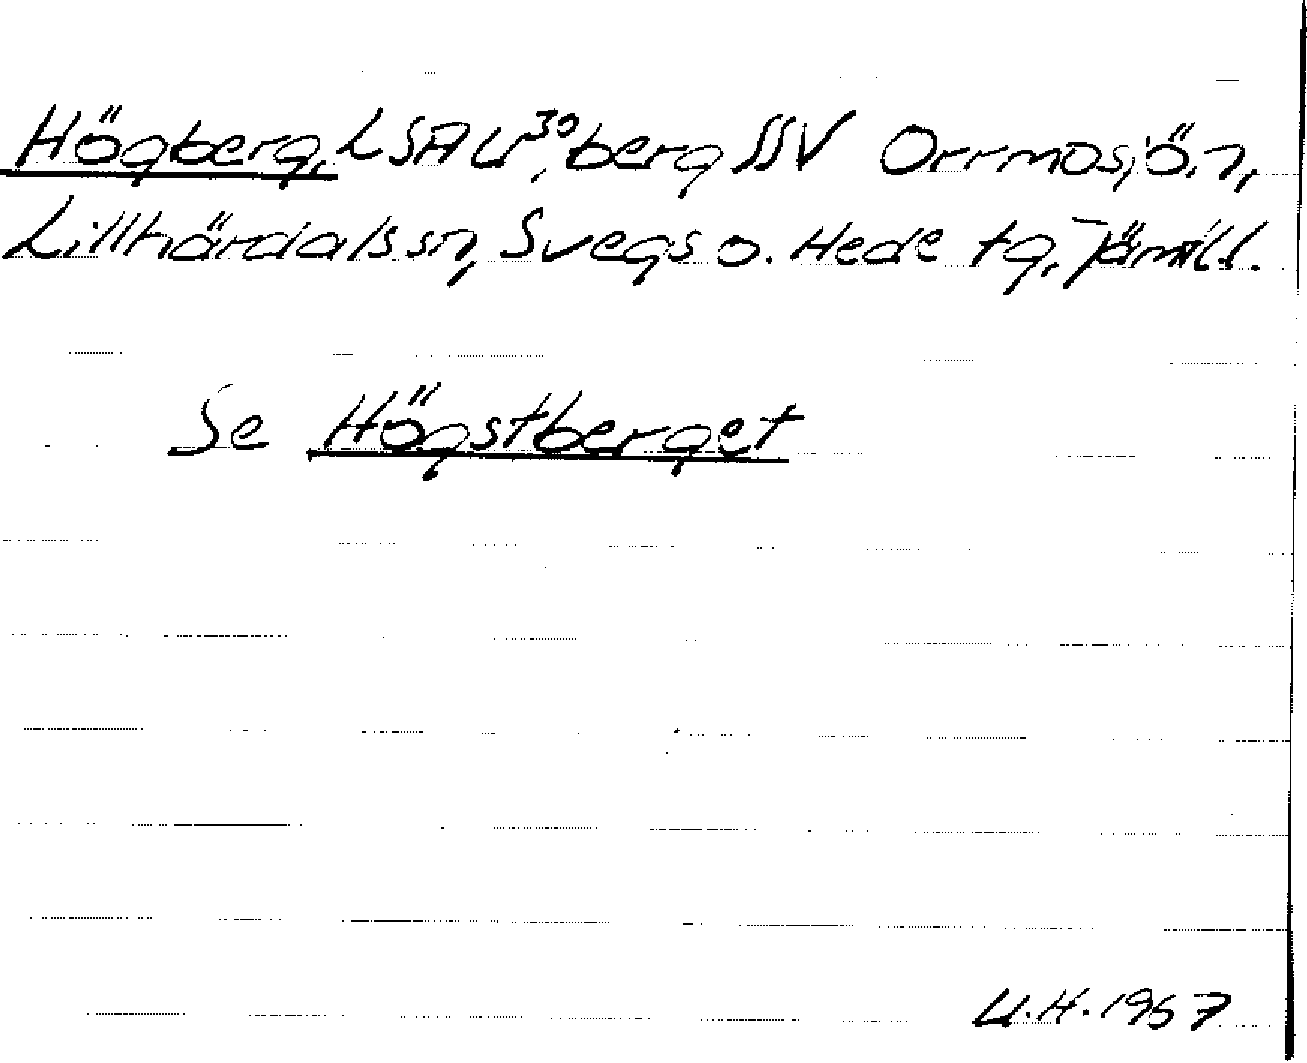 Högberg, LSA U³⁰, berg SSV Orrmosjön,
Lillhärdals sn, Svegs o. Hede tg, Jämtl l.
Se Högstberget
U.H. 1967